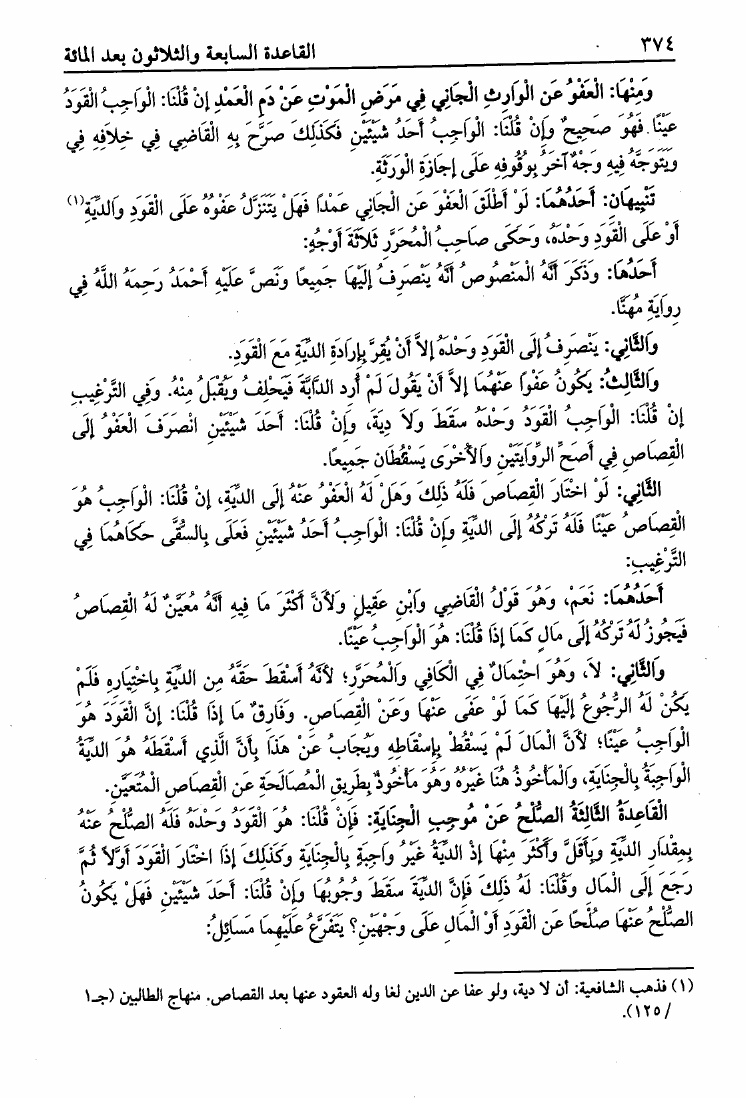 ٣٧٤
القاعدة السابعة والثلاثون بعد المائة
وَمِنْهَا: الْعَفْوُ عَنِ الْوَارِثِ الْجَانِي فِي مَرَضِ الْمَوْتِ عَنْ دَمِ الْعَمْدِ إِنْ قُلْنَا: الْوَاجِبُ الْقَوَدُ
عَيْنًا. فَهُوَ صَحِيحٌ وَإِنْ قُلْنَا: الْوَاجِبُ أَحَدُ شَيْئَيْنِ فَكَذَلِكَ صَرَّحَ بِهِ الْقَاضِي فِي خِلَافِهِ فِي
وَيَتَوَجَّهُ فِيهِ وَجْهٌ آخَرُ بِوُقُوفِهِ عَلَى إِجَازَةِ الْوَرَثَةِ.
تَنْبِيهَان: أَحَدُهُمَا: لَوْ أَطْلَقَ الْعَفْوَ عَنِ الْجَانِي عَمْدًا فَهَلْ يَتَنَزَّلُ عَفْوُهُ عَلَى الْقَوَدِ وَالدِّيَةِ(١)
أَوْ عَلَى الْقَوَدِ وَحْدَهُ، وَحَكَى صَاحِبُ الْمُحَرَّرِ ثَلَاثَةَ أَوْجُهٍ:
أَحَدُهَا: وَذَكَرَ أَنَّهُ الْمَنْصُوصُ أَنَّهُ يَنْصَرِفُ إِلَيْهَا جَمِيعًا وَنَصَّ عَلَيْهِ أَحْمَدُ رَحِمَهُ اللَّهُ فِي
رِوَايَةِ مُهَنَّا.
وَالثَّانِي: يَنْصَرِفُ إِلَى الْقَوَدِ وَحْدَهُ إِلاَّ أَنْ يُقِرَّ بِإِرَادَةِ الدِّيَةِ مَعَ الْقَوَدِ.
وَالثَّالِثُ: يَكُونُ عَفْوًا عَنْهُمَا إِلاَّ أَنْ يَقُولَ لَمْ أُرِدِ الدَّابَّةَ فَيَحْلِفُ وَيُقْبَلُ مِنْهُ. وَفِي التَّرْغِيبِ
إِنْ قُلْنَا: الْوَاجِبُ الْقَوَدُ وَحْدَهُ سَقَطَ وَلاَ دِيَةَ، وَإِنْ قُلْنَا: أَحَدَ شَيْئَيْنِ انْصَرَفَ الْعَفْوُ إِلَى
الْقِصَاصِ فِي أَصَحِّ الرِّوَايَتَيْنِ وَالْأُخْرَى يَسْقُطَانِ جَمِيعًا.
الثَّانِي: لَوْ اخْتَارَ الْقِصَاصَ فَلَهُ ذَلِكَ وَهَلْ لَهُ الْعَفْوُ عَنْهُ إِلَى الدِّيَةِ، إِنْ قُلْنَا: الْوَاجِبُ هُوَ
الْقِصَاصُ عَيْنًا فَلَهُ تَرْكُهُ إِلَى الدِّيَةِ وَإِنْ قُلْنَا: الْوَاجِبُ أَحَدُ شَيْئَيْنِ فَعَلَى بِالسُّقَّى حَكَاهُمَا فِي
التَّرْغِيبِ:
أَحَدُهُمَا: نَعَمْ، وَهُوَ قَوْلُ الْقَاضِي وَابْنِ عَقِيلٍ وَلأَنَّ أَكْثَرَ مَا فِيهِ أَنَّهُ مُعَيَّنٌ لَهُ الْقِصَاصُ
فَيَجُوزُ لَهُ تَرْكُهُ إِلَى مَالٍ كَمَا إِذَا قُلْنَا: هُوَ الْوَاجِبُ عَيْنًا.
وَالثَّانِي: لاَ، وَهُوَ احْتِمَالٌ فِي الْكَافِي وَالْمُحَرَّرِ؛ لأَنَّهُ أَسْقَطَ حَقَّهُ مِنِ الدِّيَةِ بِاخْتِيَارِهِ فَلَمْ
يَكُنْ لَهُ الرُّجُوعُ إِلَيْهَا كَمَا لَوْ عَفَى عَنْهَا وَعَنِ الْقِصَاصِ. وَفَارِقٌ مَا إِذَا قُلْنَا: إِنَّ الْقَوَدَ هُوَ
الْوَاجِبُ عَيْنًا؛ لأَنَّ الْمَالَ لَمْ يَسْقُطْ بِإِسْقَاطِهِ وَيُجَابُ عَنْ هَذَا بِأَنَّ الَّذِي أَسْقَطَهُ هُوَ الدِّيَةُ
الْوَاجِبَةُ بِالْجِنَايَةِ، وَالْمَأْخُوذُ هُنَا غَيْرُهُ وَهُوَ مَأْخُوذٌ بِطَرِيقِ الْمُصَالَحَةِ عَنِ الْقِصَاصِ الْمُتَعَيَّنِ.
الْقَاعِدَةُ الثَّالِثَةُ الصُّلْحُ عَنْ مُوجِبِ الْجِنَايَةِ: فَإِنْ قُلْنَا: هُوَ الْقَوَدُ وَحْدَهُ فَلَهُ الصُّلْحُ عَنْهُ
بِمِقْدَارِ الدِّيَةِ وَبِأَقَلَّ وَأَكْثَرَ مِنْهَا إِذِ الدِّيَةُ غَيْرُ وَاجِبَةٍ بِالْجِنَايَةِ وَكَذَلِكَ إِذَا اخْتَارَ الْقَوَدَ أَوَّلاً ثُمَّ
رَجَعَ إِلَى الْمَالِ وَقُلْنَا: لَهُ ذَلِكَ فَإِنَّ الدِّيَةَ سَقَطَ وُجُوبُهَا وَإِنْ قُلْنَا: أَحَدَ شَيْئَيْنِ فَهَلْ يَكُونُ
الصُّلْحُ عَنْهَا صُلْحًا عَنِ الْقَوَدِ أَوْ الْمَالِ عَلَى وَجْهَيْنِ؟ يَتَفَرَّعُ عَلَيْهِمَا مَسَائِلُ:
(١) فذهب الشافعية: أن لا دية، ولو عفا عن الدين لغا وله العقود عنها بعد القصاص. منهاج الطالبين (جـ١
/١٢٥).